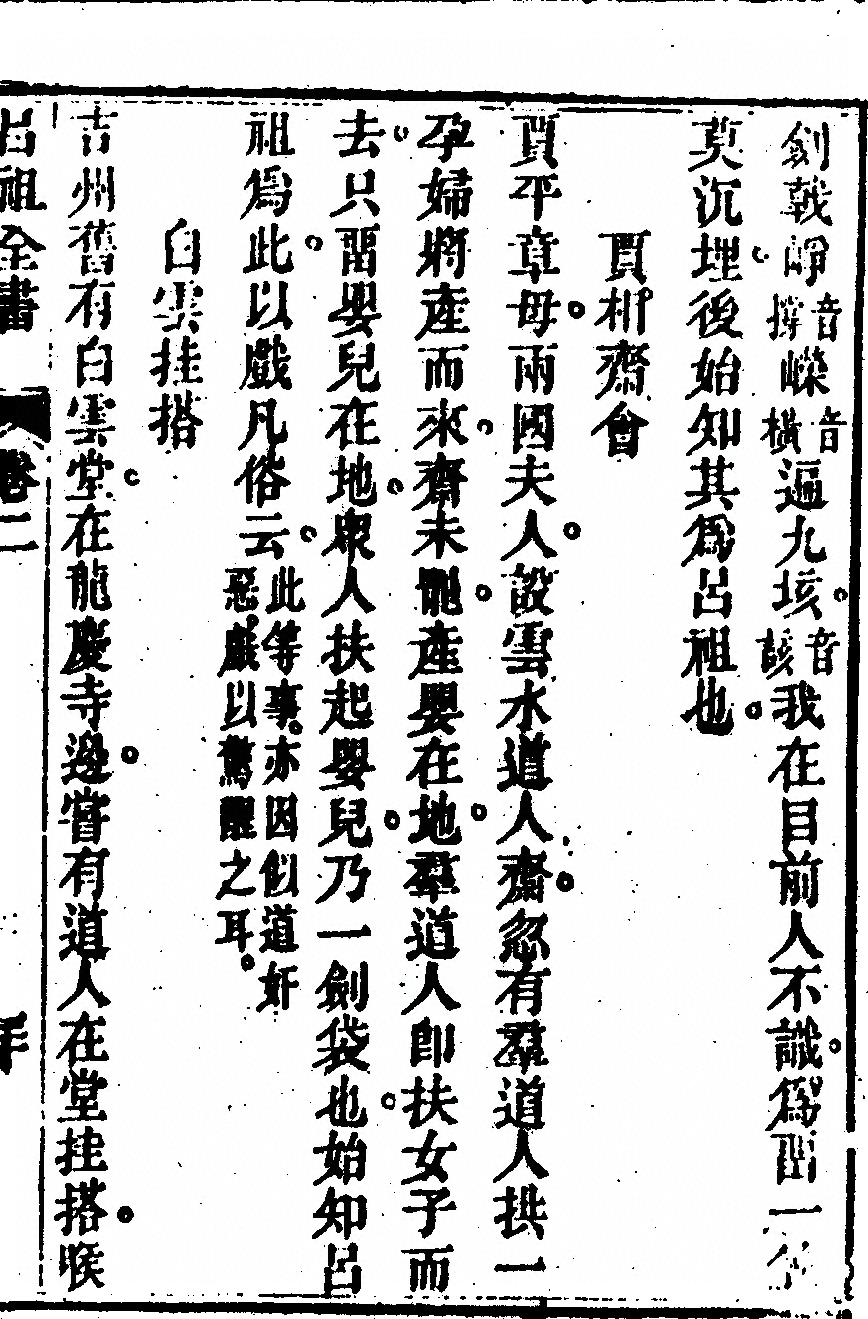 劍戟崢音撐嶸音橫逼九垓音該。我在目前人不識。爲留一
莫沉埋。後始知其爲呂祖也。
賈相齋會
賈平章母。兩國夫人。設雲水道人齋。忽有羣道人拱一
孕婦將產而來。齋未罷。產嬰在地。羣道人卽扶女子而
去。只留嬰兒在地。衆人扶起嬰兒。乃一劍袋也。始知呂
祖爲此。以戲凡俗云。此等事。亦因似道奸惡。戲以驚醒之耳。
白雲挂搭
吉州舊有白雲堂。在龍慶寺邊。嘗有道人在堂挂搭。喉
呂祖全書 卷二